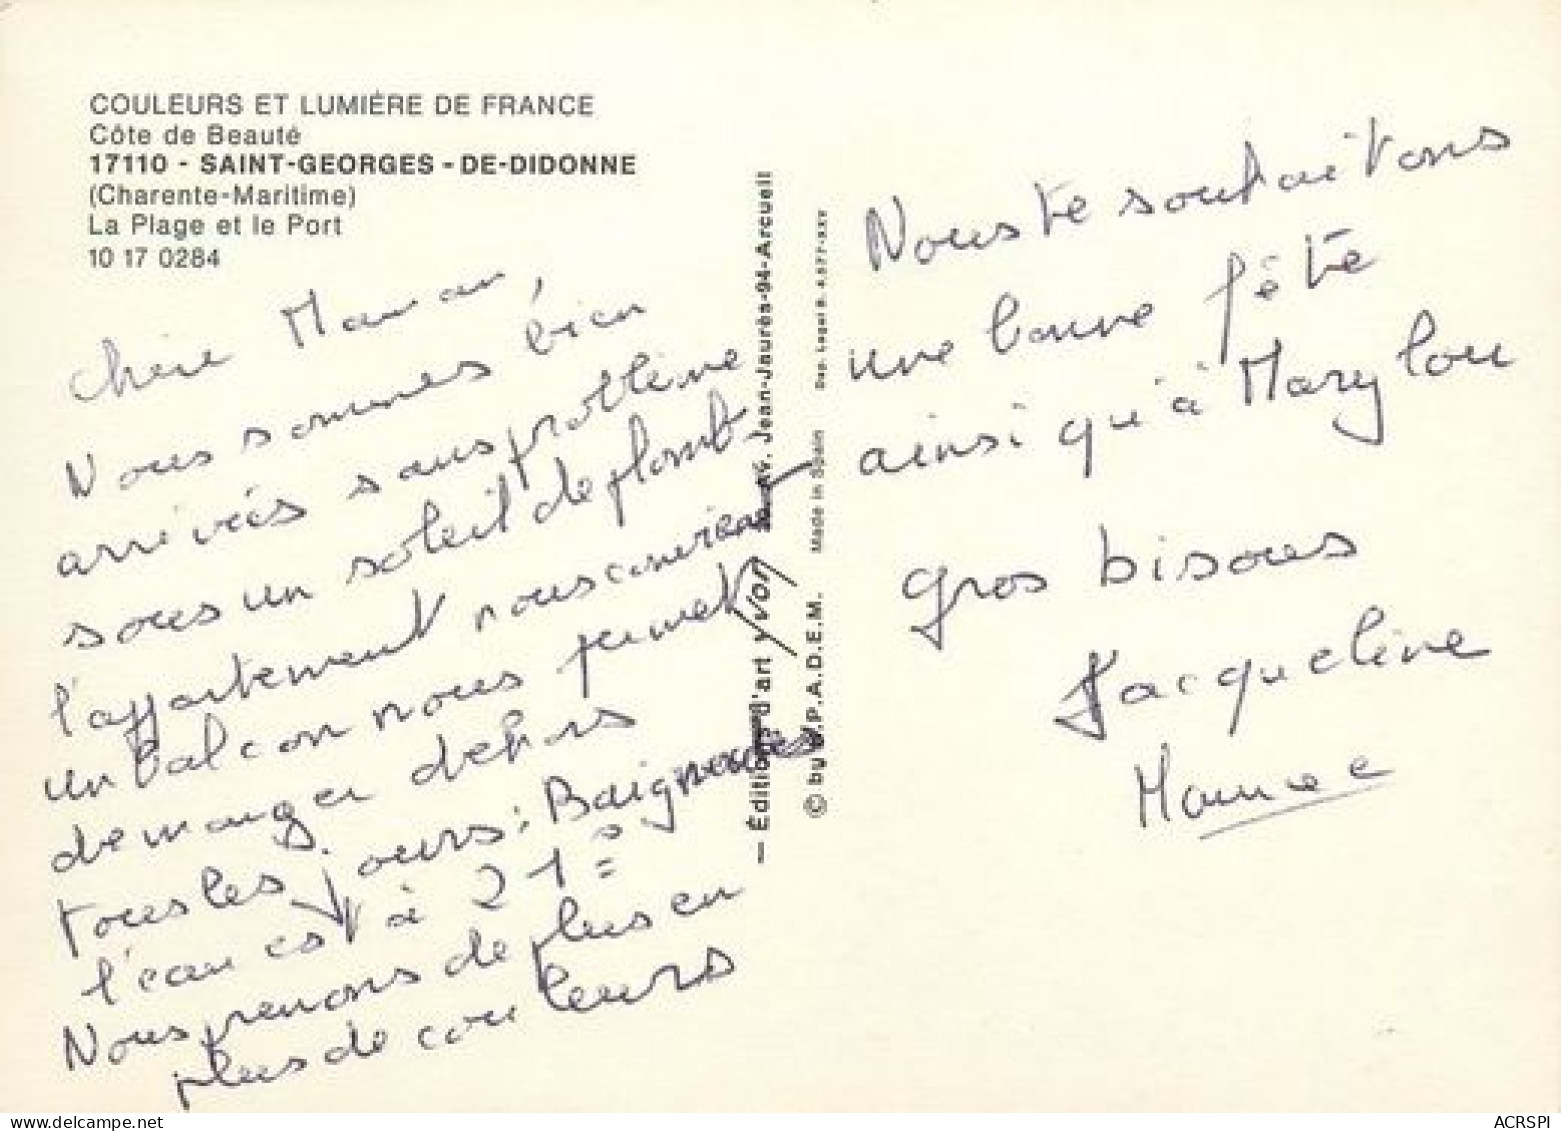 COULEURS ET LUMIÈRE DE FRANCE
Côte de Beauté
17110 - SAINT-GEORGES - DE-DIDONNE
(Charente-Maritime)
La Plage et le Port
10 17 0284
chère Maman,
Nous sommes bien
arrivés sans problème
sous un soleil de plomb
l'appartement nous convient
un balcon nous permet
de manger dehors
tous les jours : Baignades
l'eau est à 21°
Nous prenons de plus en
plus de couleurs
— Éditions d'art YVON Jean-Jaurès-94-Arcueil
© by S.P.A.D.E.M. Made in Spain Dep. Legal B. 4.577-XXV
Nous te souhaitons
une bonne fête
ainsi qu'à Mary lou
gros bisous
Jacqueline
ACRSPI